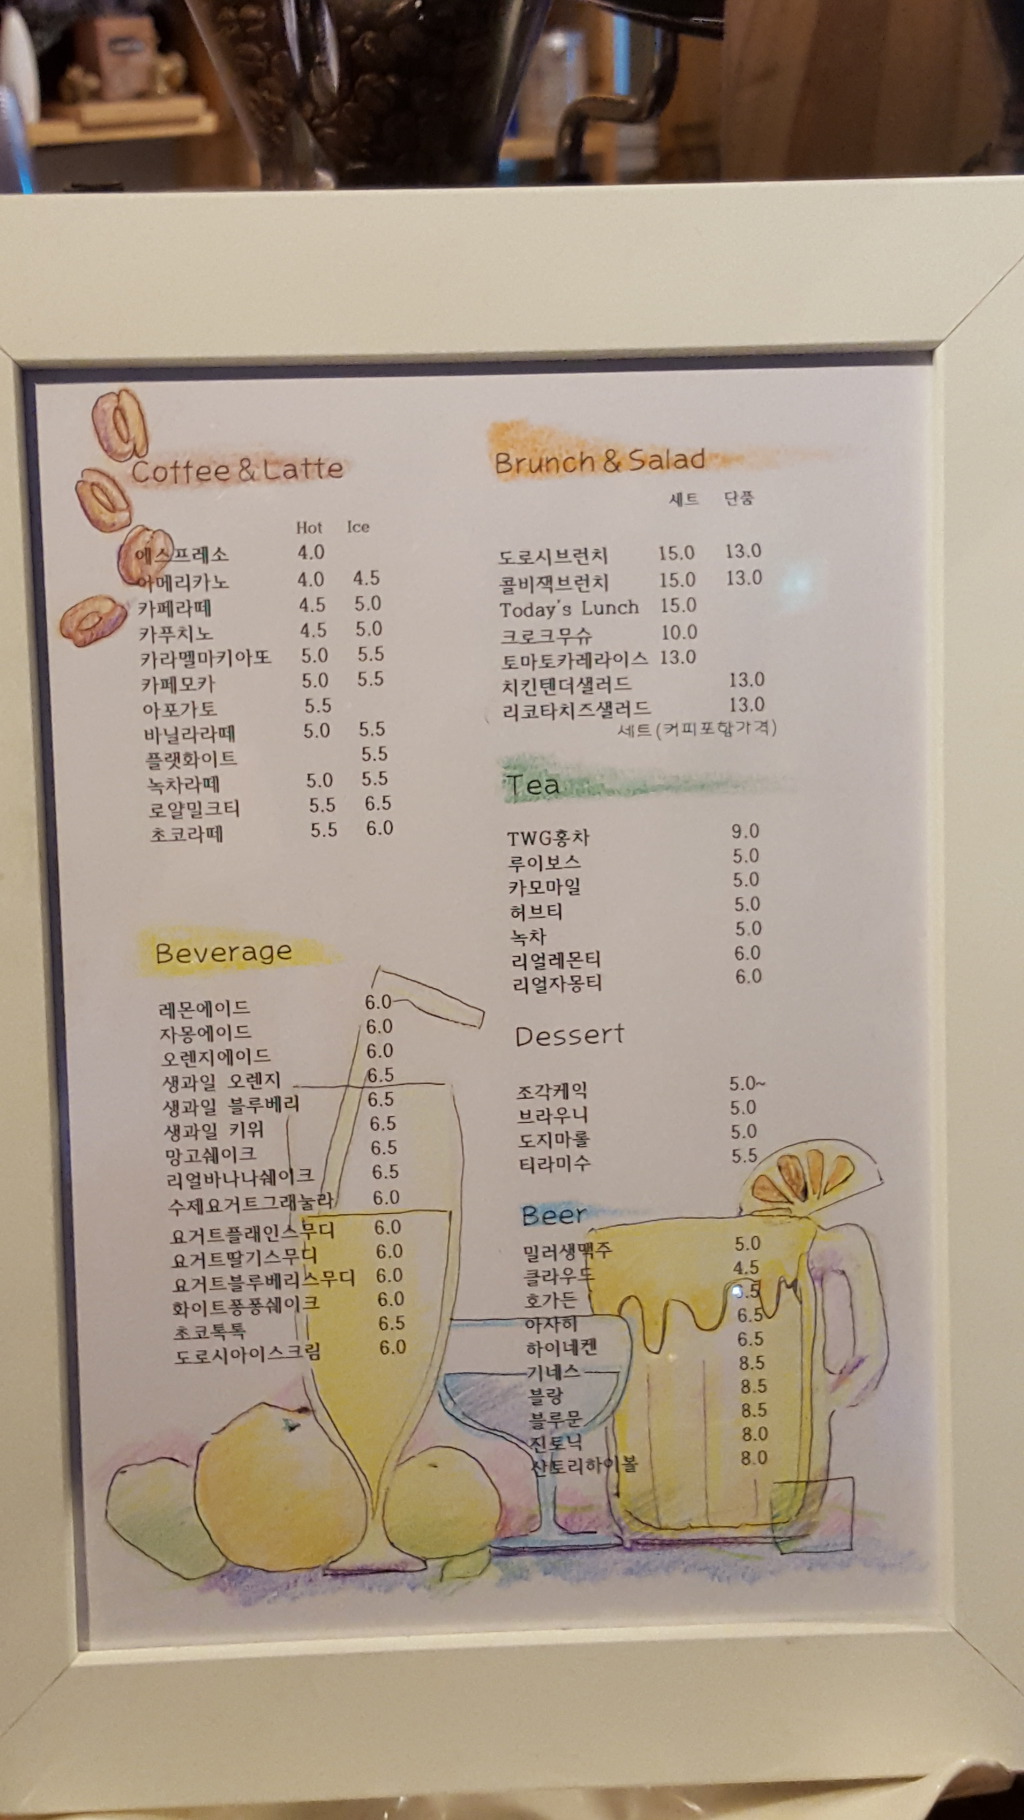 Coffee & Latte
Hot Ice
에스프레소 4.0
아메리카노 4.0 4.5
카페라떼 4.5 5.0
카푸치노 4.5 5.0
카라멜마키아또 5.0 5.5
카페모카 5.0 5.5
아포가토 5.5
바닐라라떼 5.0 5.5
플랫화이트 5.5
녹차라떼 5.0 5.5
로얄밀크티 5.5 6.5
초코라떼 5.5 6.0
Beverage
레몬에이드 6.0
자몽에이드 6.0
오렌지에이드 6.0
생과일 오렌지 6.5
생과일 블루베리 6.5
생과일 키위 6.5
망고쉐이크 6.5
리얼바나나쉐이크 6.5
수제요거트그래놀라 6.0
요거트플래인스무디 6.0
요거트딸기스무디 6.0
요거트블루베리스무디 6.0
화이트퐁퐁쉐이크 6.0
초코톡톡 6.5
도로시아이스크림 6.0
Brunch & Salad
세트 단품
도로시브런치 15.0 13.0
콜비잭브런치 15.0 13.0
Today's Lunch 15.0
크로크무슈 10.0
토마토카레라이스 13.0
치킨텐더샐러드 13.0
리코타치즈샐러드 13.0
세트(커피포함가격)
Tea
TWG홍차 9.0
루이보스 5.0
카모마일 5.0
허브티 5.0
녹차 5.0
리얼레몬티 6.0
리얼자몽티 6.0
Dessert
조각케익 5.0~
브라우니 5.0
도지마롤 5.0
티라미수 5.5
Beer
밀러생맥주 5.0
클라우드 4.5
호가든
아사히 6.5
하이네켄 6.5
기네스 8.5
블랑 8.5
블루문 8.5
진토닉 8.0
산토리하이볼 8.0